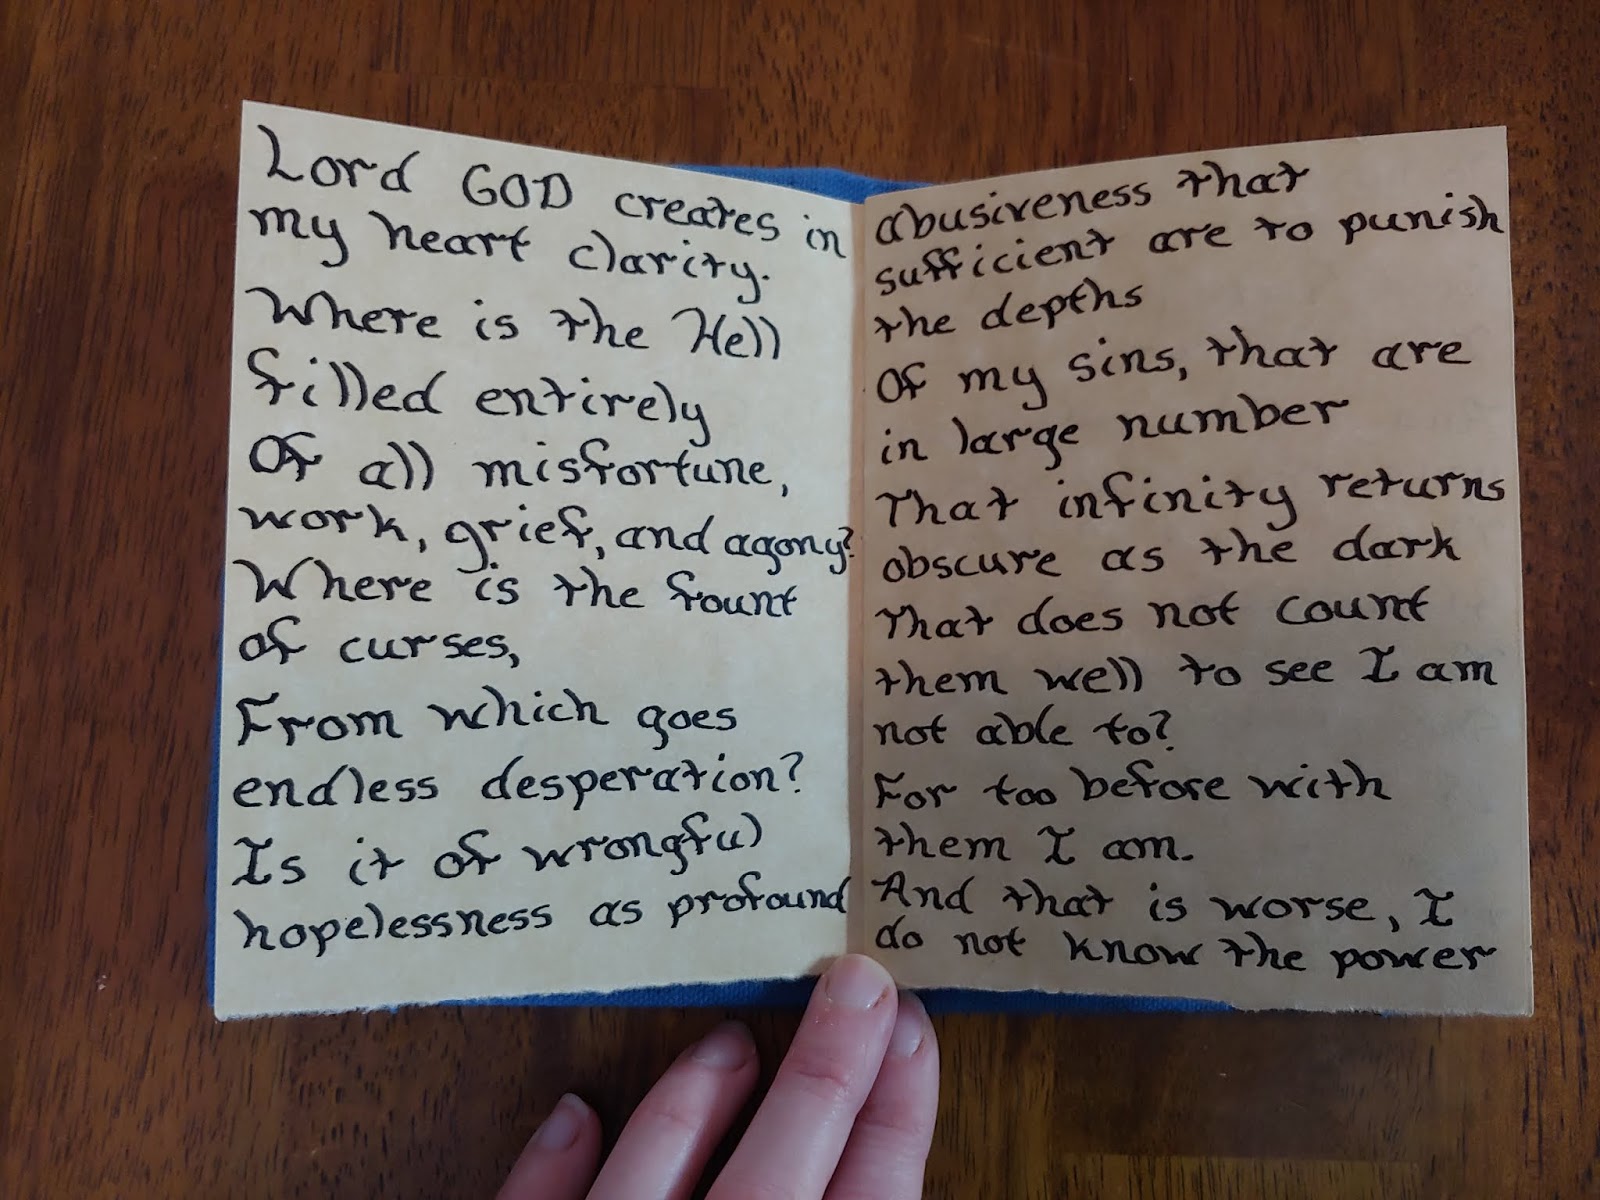 Lord GOD creates in
my heart clarity.
Where is the Hell
filled entirely
Of all misfortune,
work, grief, and agony?
Where is the fount
of curses,
From which goes
endless desperation?
Is it of wrongful
hopelessness as profound
abusiveness that
sufficient are to punish
the depths
Of my sins, that are
in large number
That infinity returns
obscure as the dark
That does not count
them well to see I am
not able to?
For too before with
them I am.
And that is worse, I
do not know the power